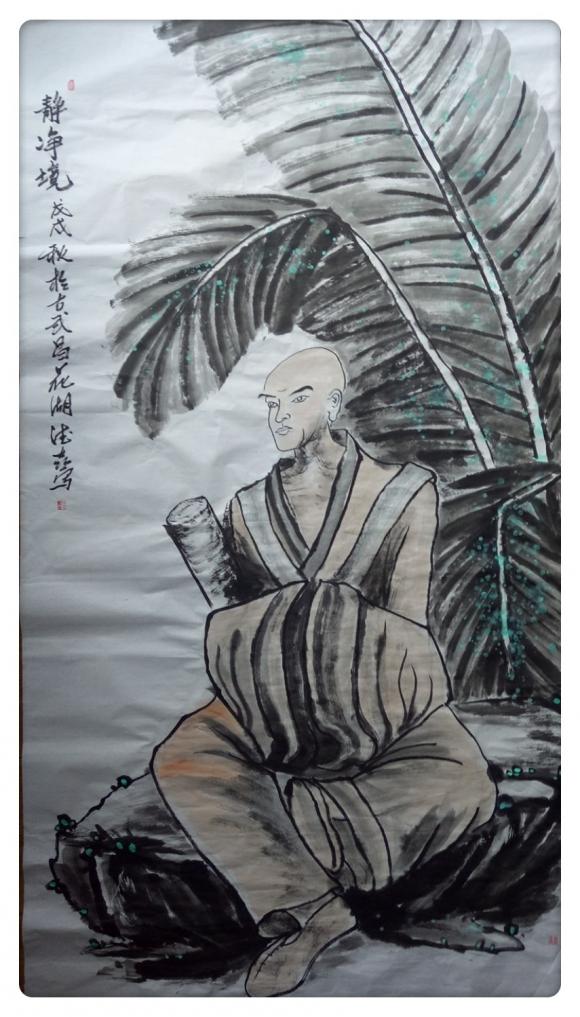 静净境 戊戌秋于古武昌花湖